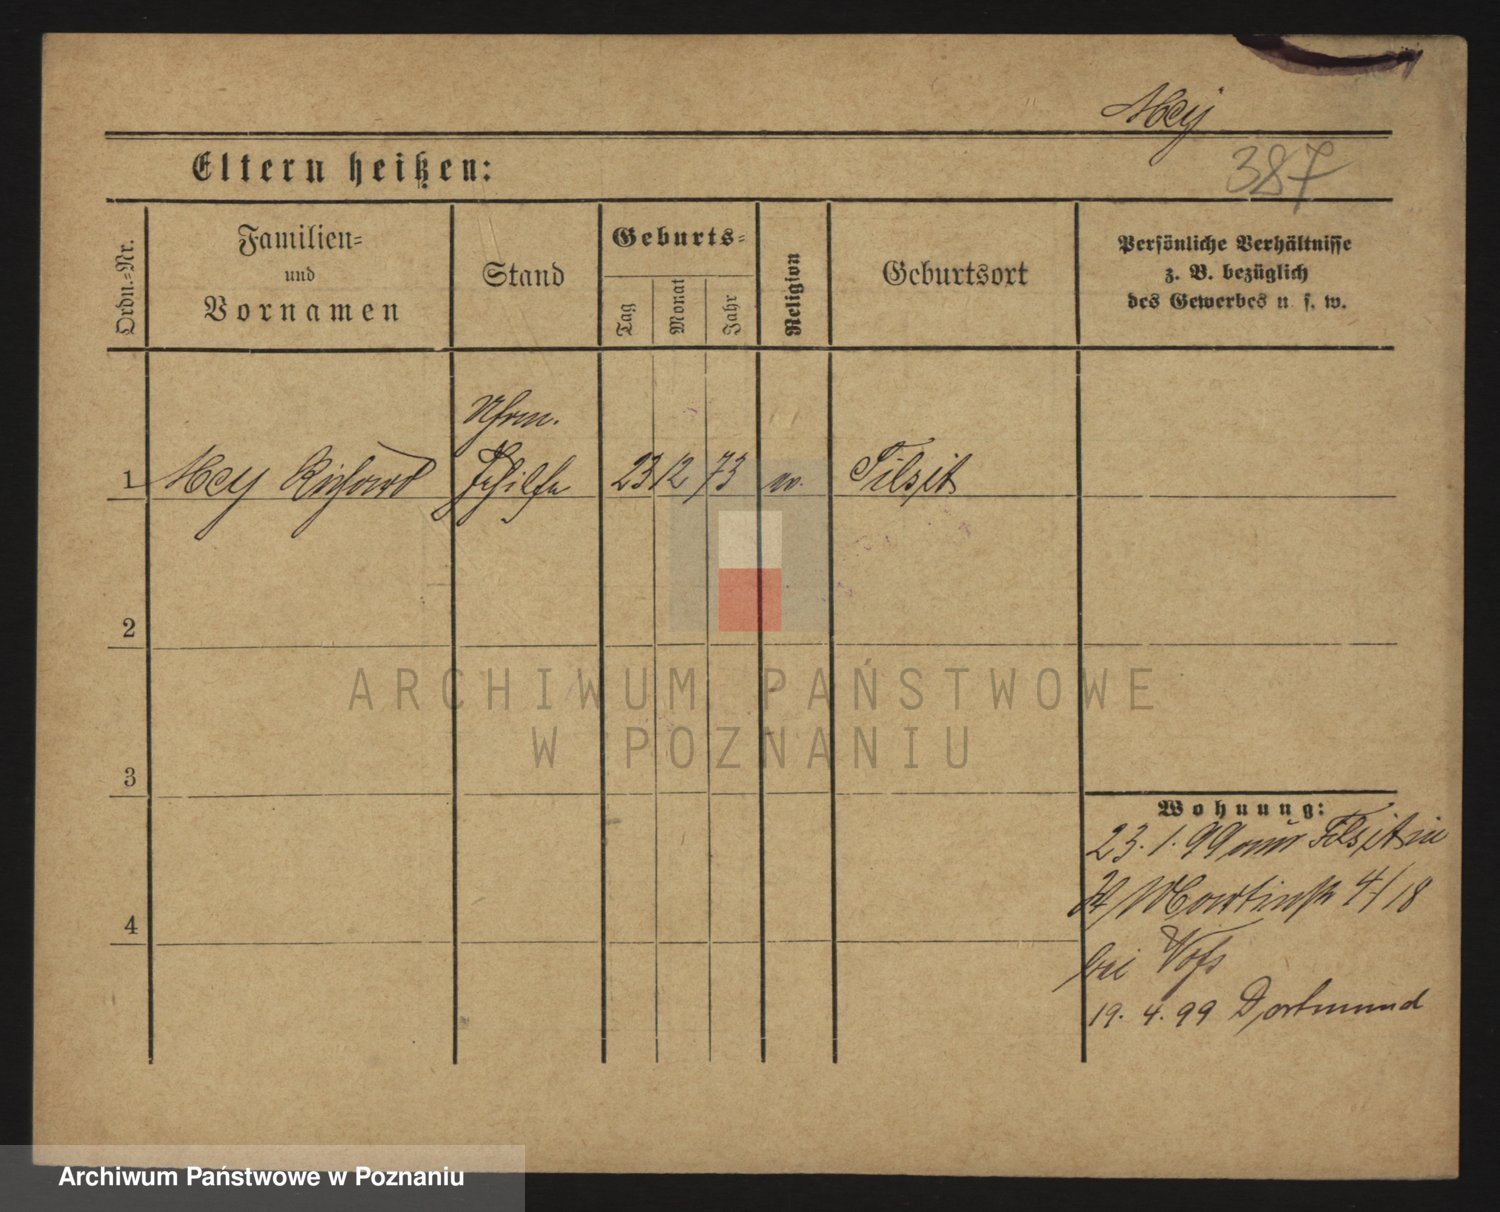 Mey
387
Eltern heißen:
Ordn.=Nr.
Familien=
und
Vornamen
Stand
Geburts=
Tag
Monat
Jahr
Religion
Geburtsort
Persönliche Verhältnisse
z. B. bezüglich
des Gewerbes u. s. w.
Uhrm.
1 Mey Richard Gehilfe 23 12 73 ev. Tilsit
2
3
4
Wohnung:
23. 1. 99 aus Tilsit in
St Martinstr 4/18
bei Voß
19. 4. 99 Dortmund
ARCHIWUM PAŃSTWOWE
W POZNANIU
Archiwum Państwowe w Poznaniu